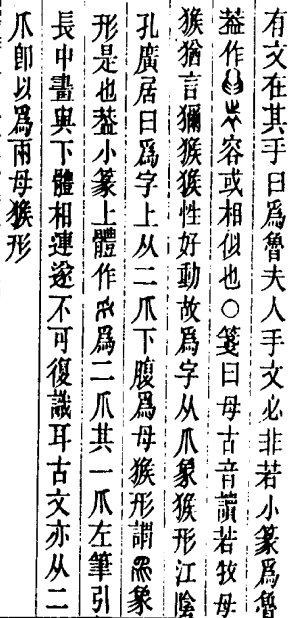 有文在其手曰爲魯夫人手文必非若小篆爲魯
葢作容或相似也○箋曰母古音讀若牧母
猴猶言獼猴猴性好動故爲字从爪象猴形江陰
孔廣居曰爲字上从二爪下腹爲母猴形謂象
形是也葢小篆上體作爲二爪其一爪左筆引
長中畫與下體相連遂不可復識耳古文亦从二
爪卽以爲兩母猴形